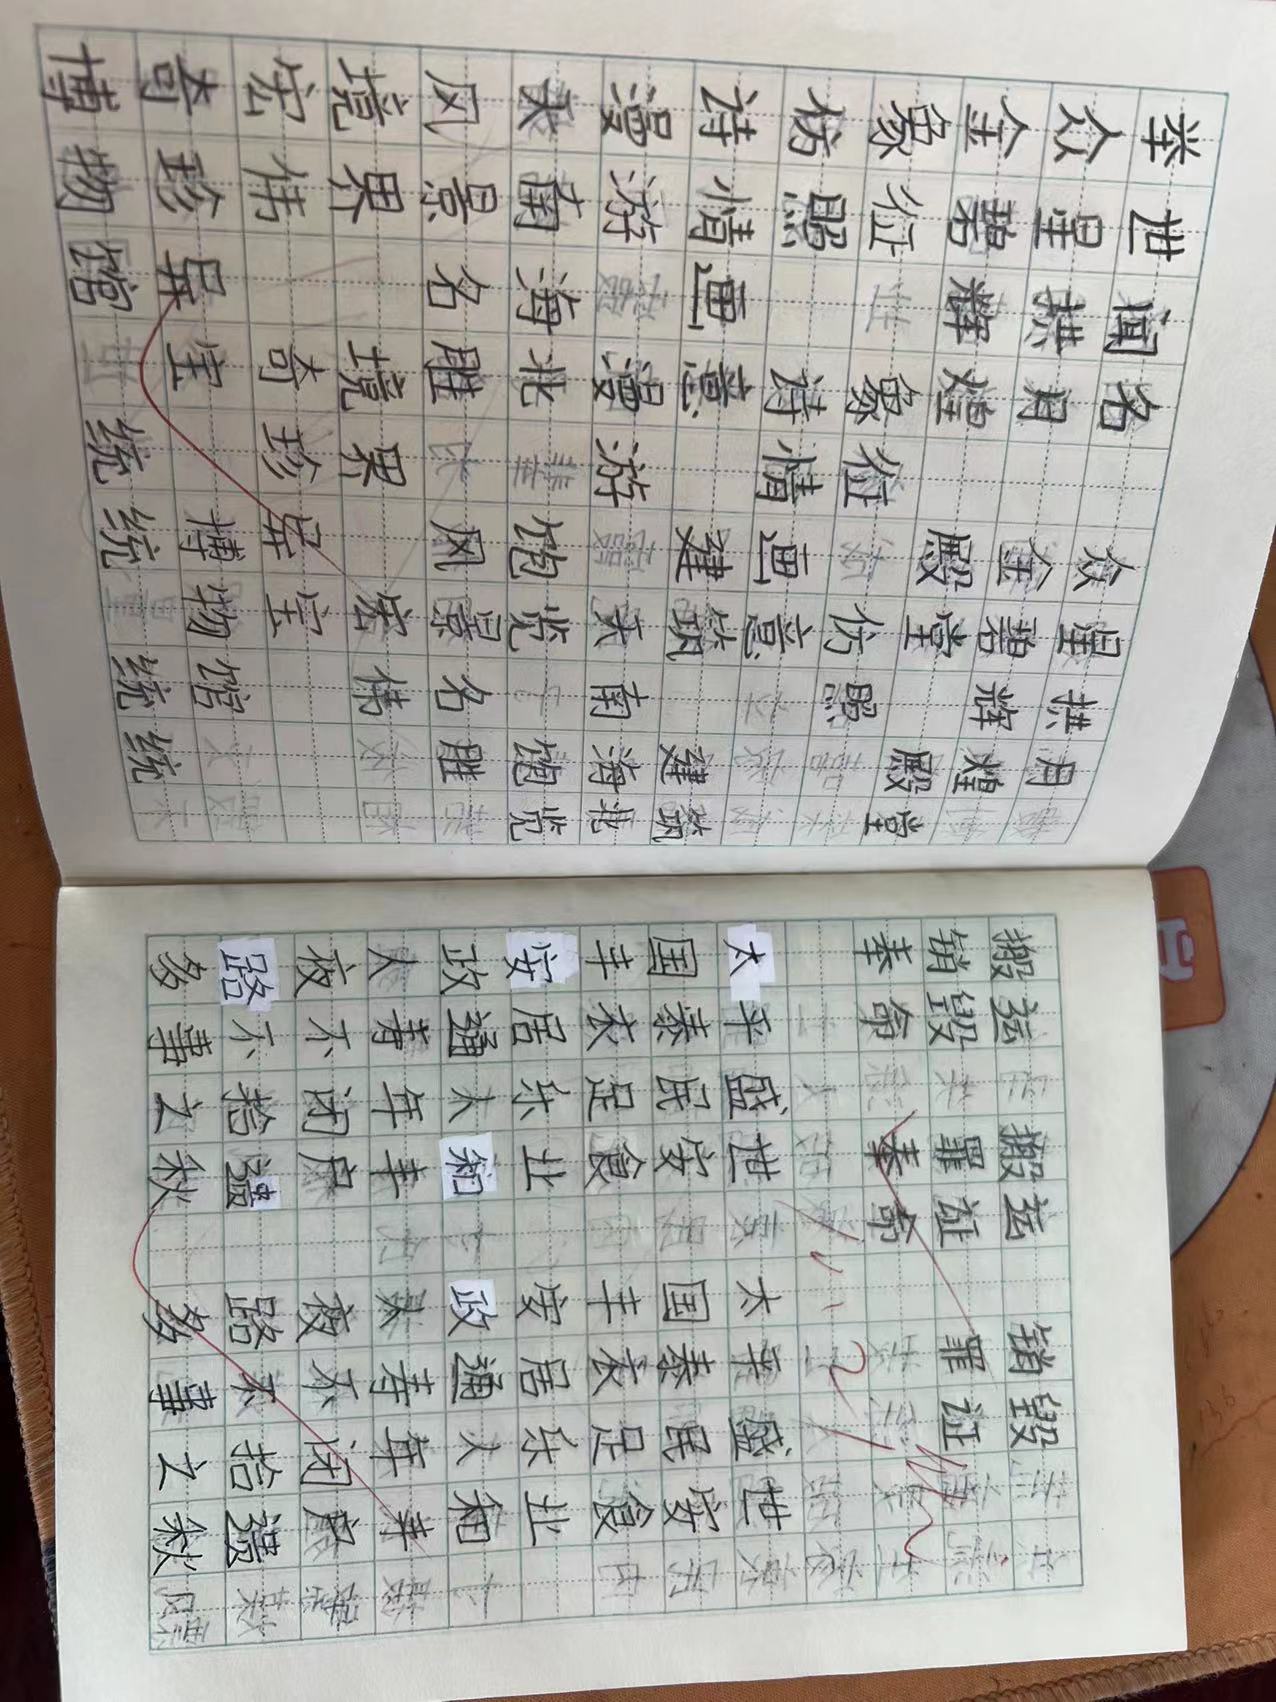 举世闻名 众星拱月
众星拱月 金碧辉煌
金碧辉煌 殿堂 殿堂
象征 象征 仿照
仿照 诗情画意
诗情画意 建筑 建筑
漫游 漫游 天南海北
天南海北 饱览 饱览
风景名胜 风景名胜
境界 境界 宏伟
宏伟 奇珍异宝
奇珍异宝 博物馆
博物馆 统统 统统
搬运 搬运 销毁
销毁 罪证 罪证
奉命 奉命
太平盛世 太平盛世
国泰民安 国泰民安
丰衣足食 丰衣足食
安居乐业 安居乐业
政通人和 政通人和
人寿年丰 人寿年丰
夜不闭户 夜不闭户
路不拾遗 路不拾遗
多事之秋 多事之秋